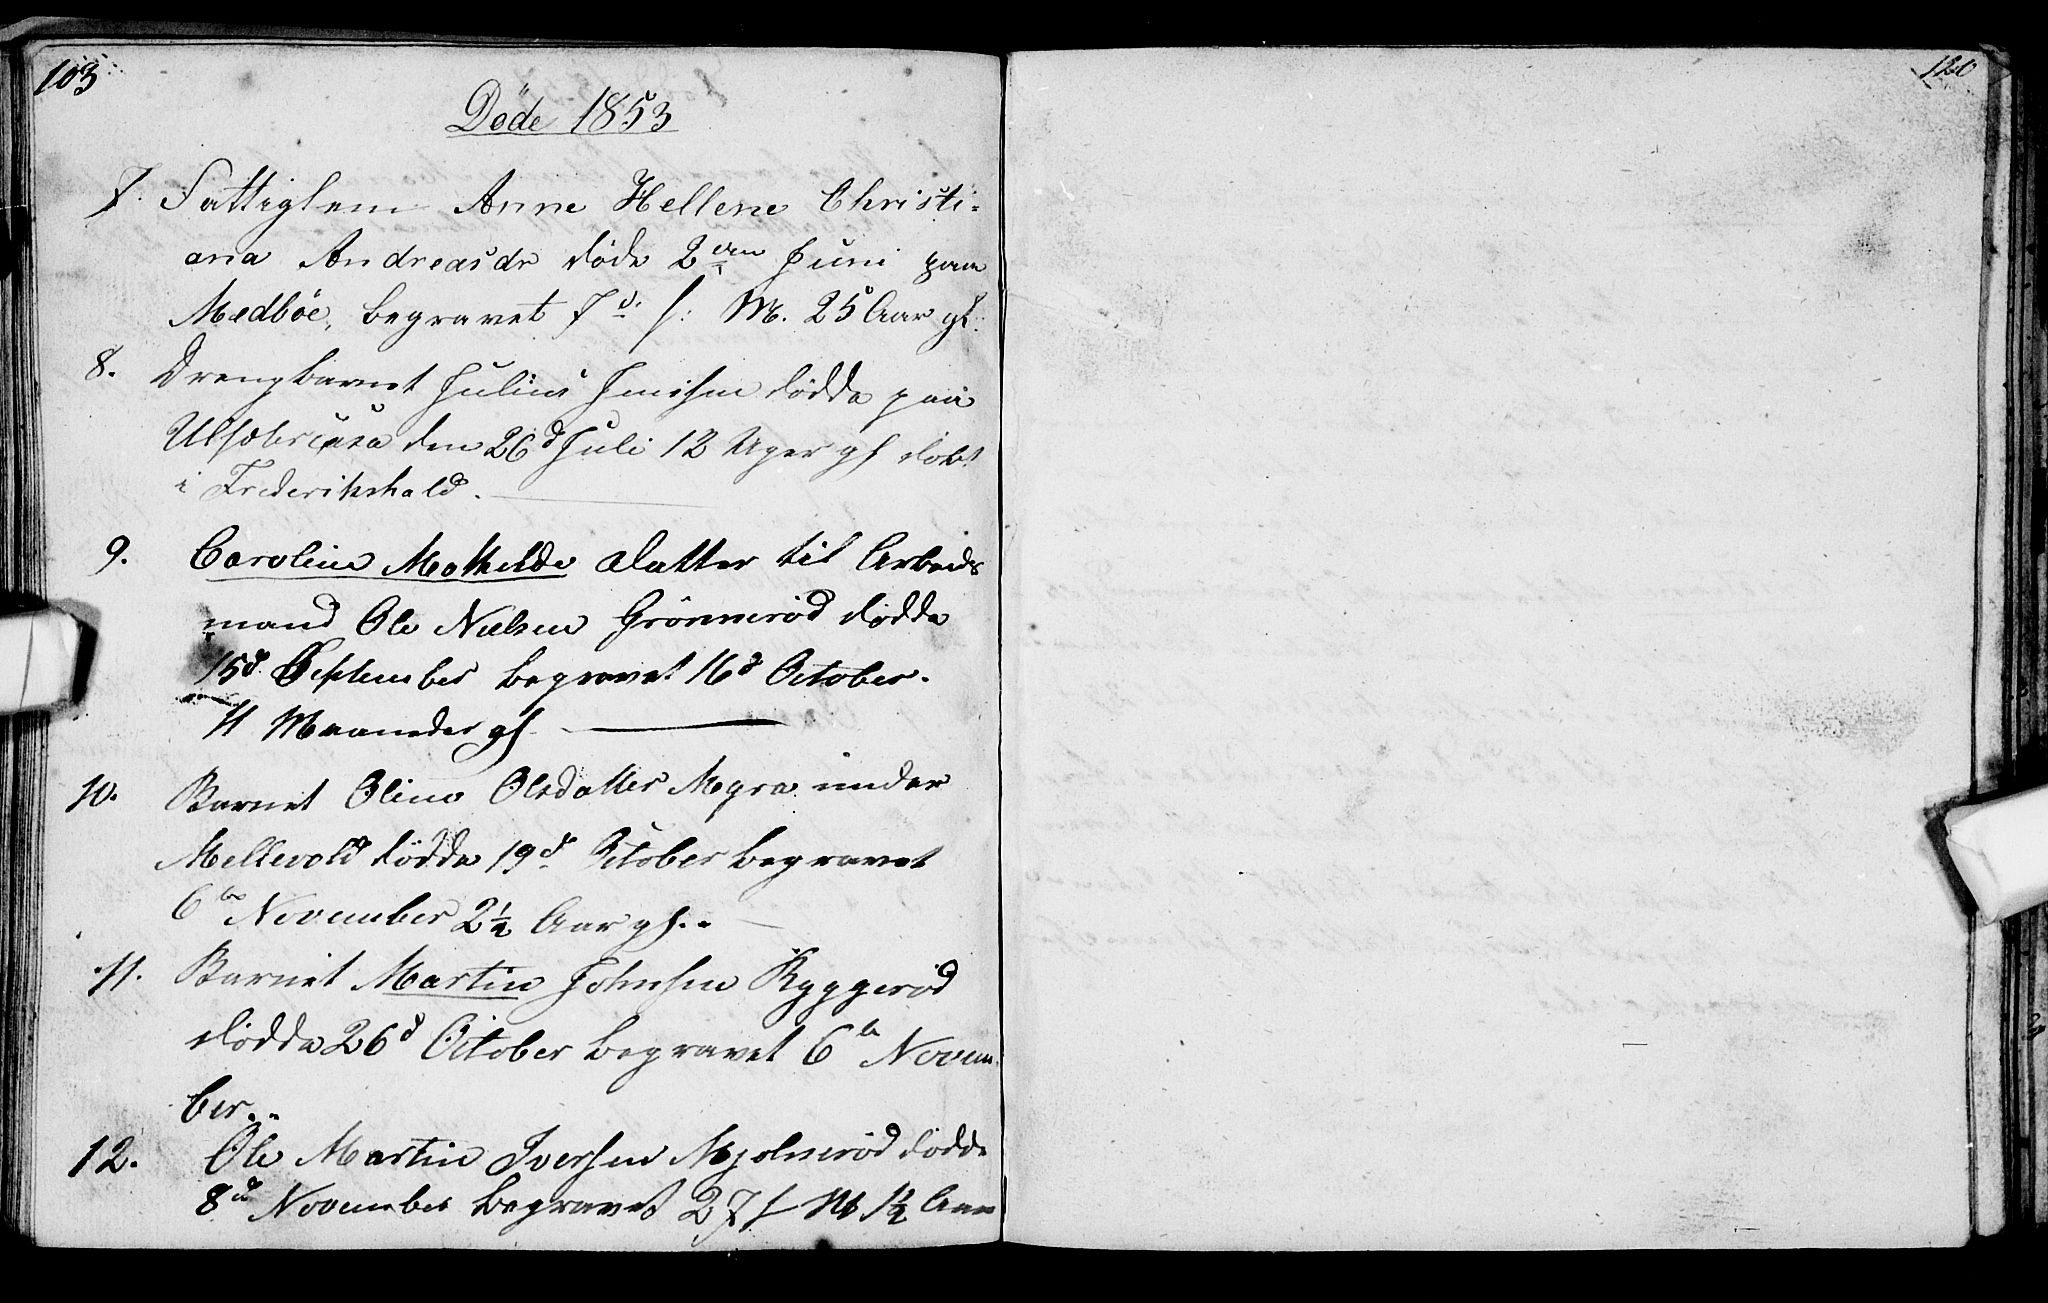 103
Døde 1853
7. Fattiglem Anne Hellene Christi=
ana Andreasdr døde 2den Juni paa
Medbøe, begravet 7d. s: M. 25 Aar gl.
8. Drengbarnet Julius Jensen dødde paa
den 26d Juli 12 Uger gl døbt
i Frederikshald.
9. Caroline Mathilde Datter til Arbeids
mand Ole Nielsen Grönnerød dødde
15d September begravet 16d October.
11 Maaneder gl
10. Barnet Oline Olsdatter Myra under
Mellevold dødde 19d October begravet
6te November 2½ Aar gl.
11. Barnet Martin Johnsen Ryggerød
dødde 26d October begravet 6te Novem
ber.
12. Ole Martin Iversen Mjolnerød dødde
8d November begravet 27 s M 1½ Aar
120